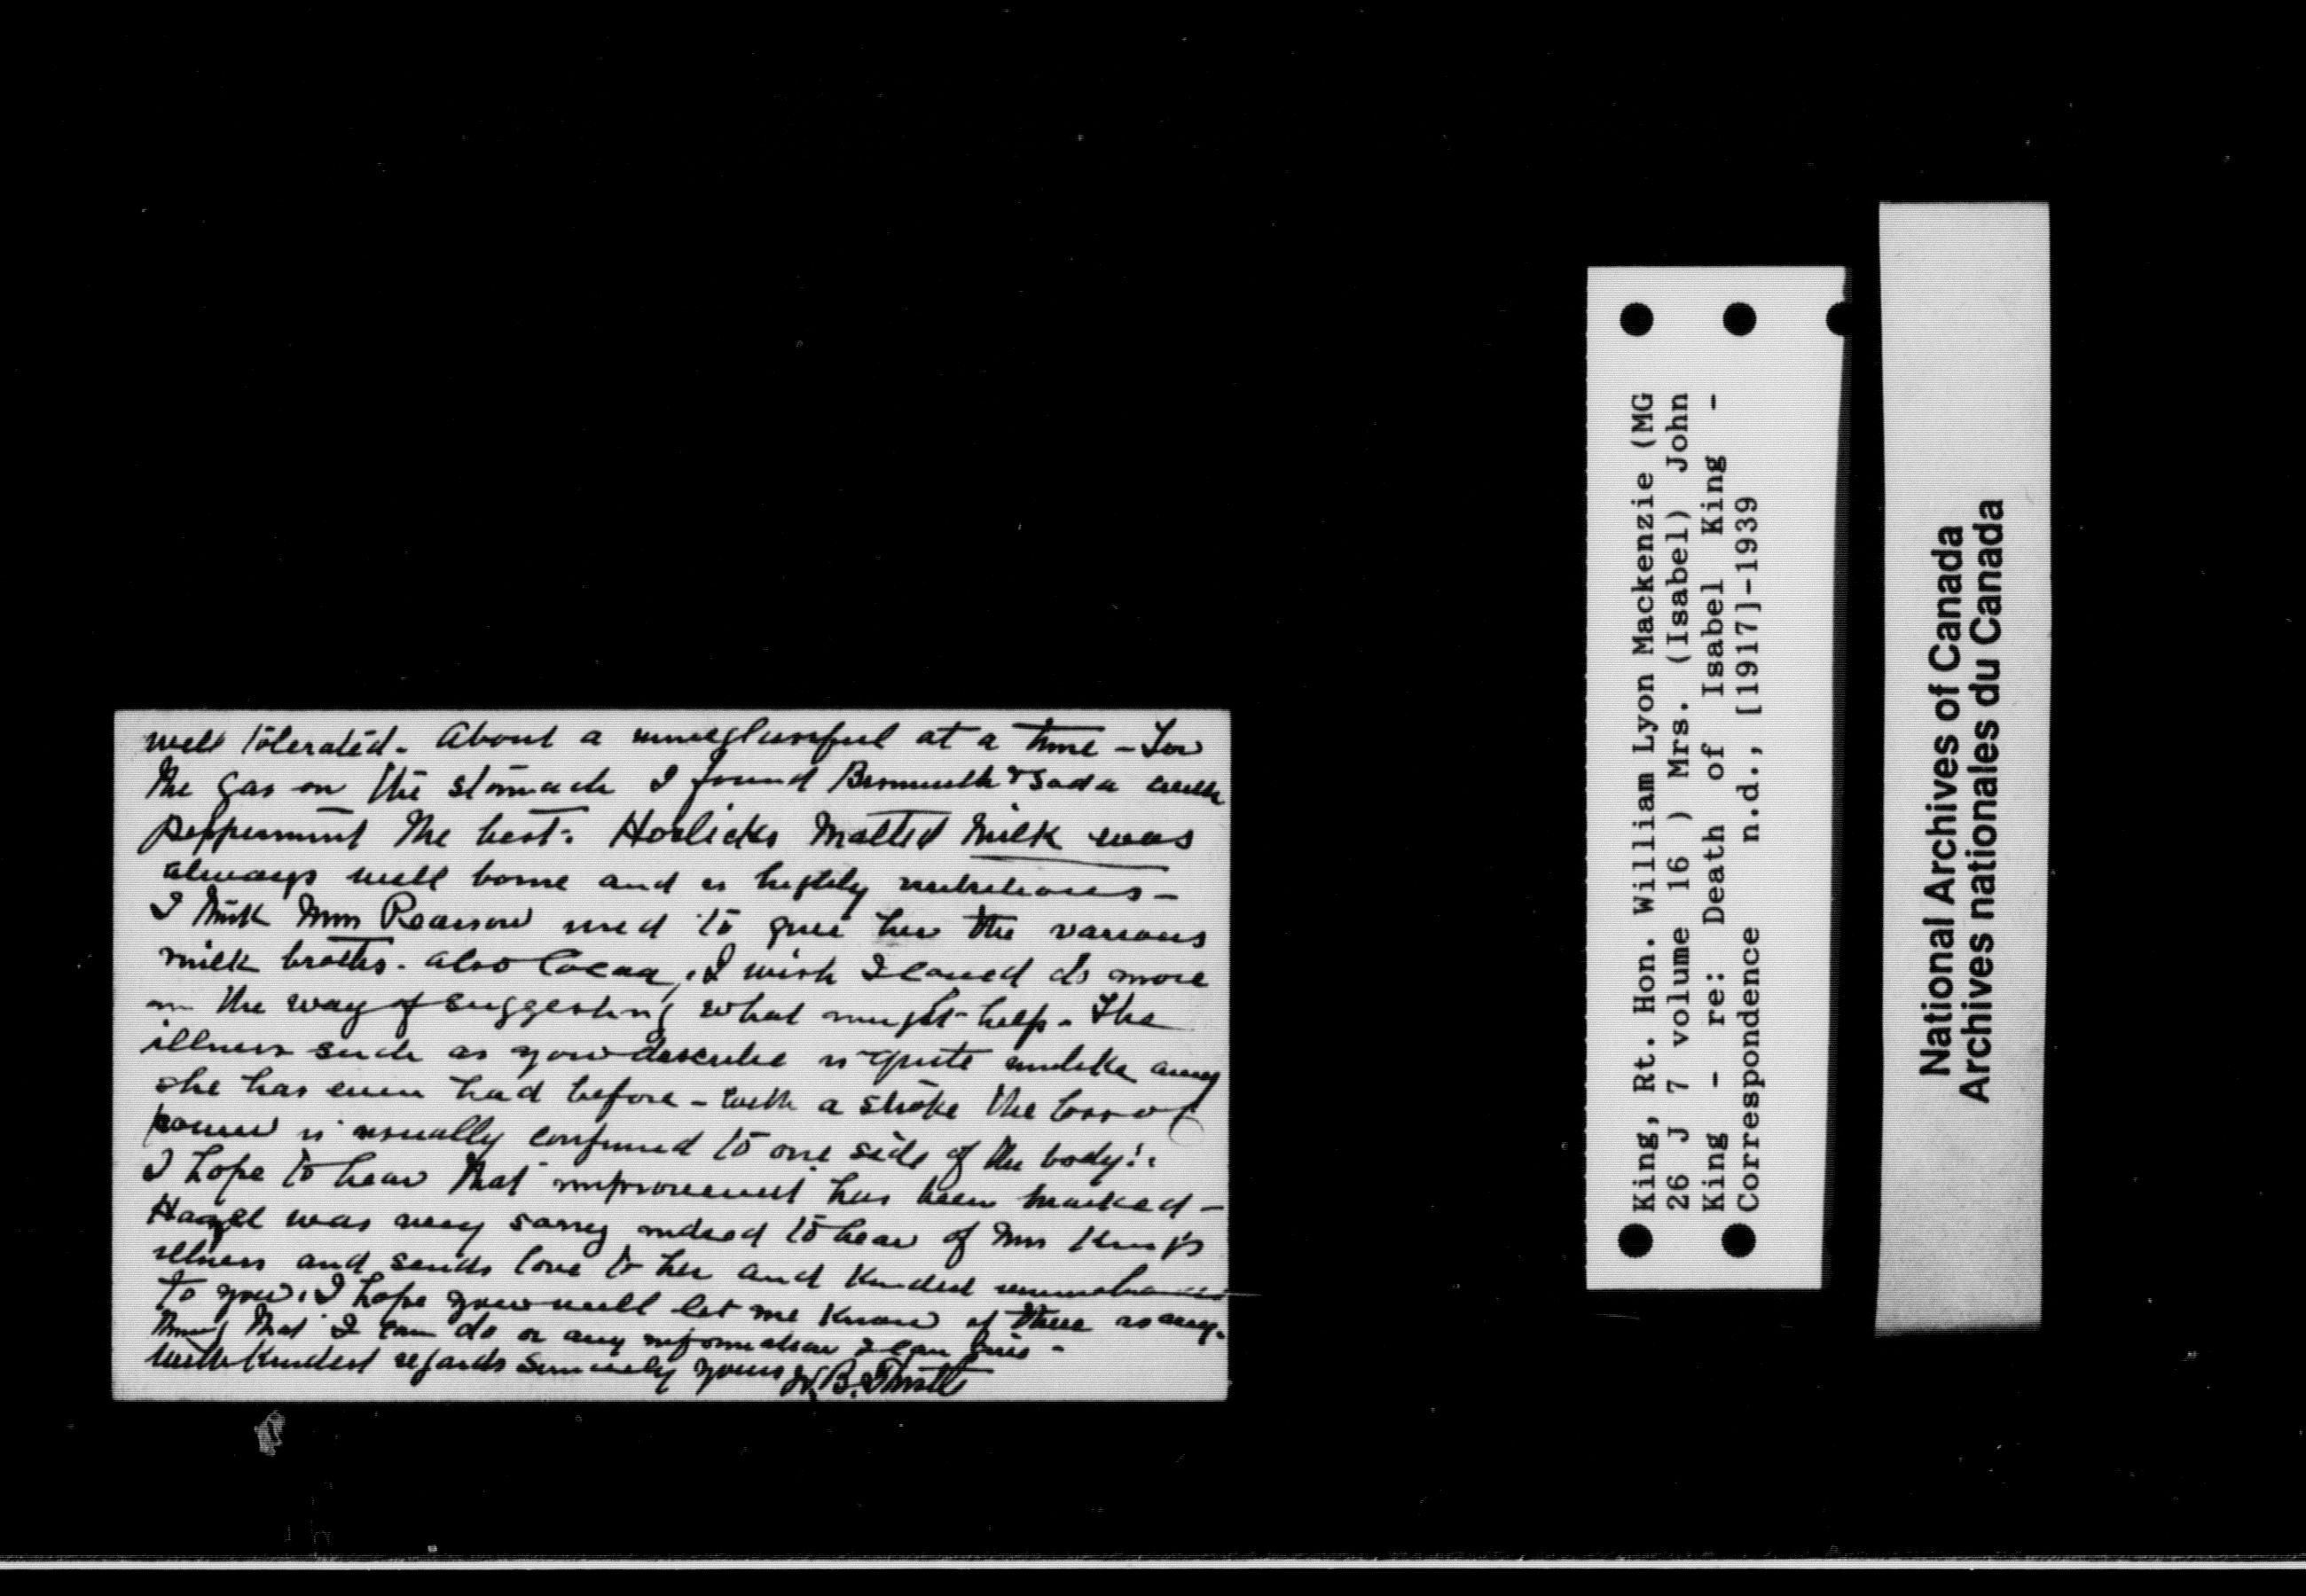 well tolerated. About a wineglassful at a time – For
the gas on the stomach I found Bismuth & Soda with
peppermint the best. Horlicks Malted Milk was
always well borne and is highly nutritious –
I think Miss Pearson used to give her the various
milk broths. also Cocoa, I wish I could do more
in the way of suggesting what might help. The
illness such as you describe is quite unlike any
she has ever had before – with a stroke the loss of
power is usually confined to one side of the body.
I hope to hear that improvement has been marked –
Hazel was very sorry indeed to hear of Mrs King's
illness and sends love to her and kindest remembrances
to you. I hope you will let me know if there is any-
thing that I can do or any information I can give –
with kindest regards Sincerely yours W. B.
King, Rt. Hon. William Lyon Mackenzie (MG
26 J 7 volume 16 ) Mrs. (Isabel) John
King – re: Death of Isabel King –
Correspondence n.d., [1917]-1939
National Archives of Canada
Archives nationales du Canada